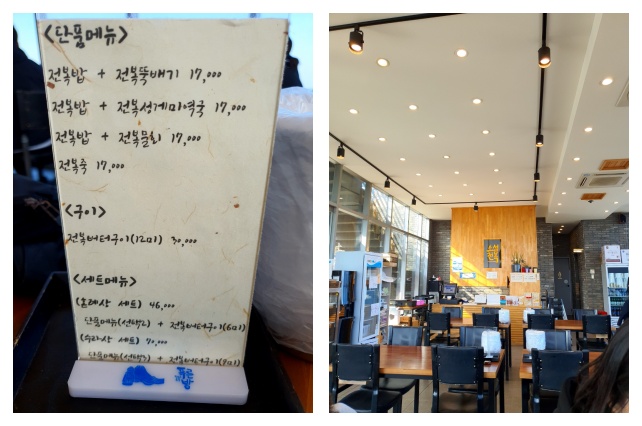 <단품메뉴>
전복밥 + 전복뚝배기 17,000
전복밥 + 전복성게미역국 17,000
전복밥 + 전복물회 17,000
전복죽 17,000
<구이>
전복버터구이(12미) 30,000
<세트메뉴>
세트) 46,000
단품메뉴(선택2) + 전복버터구이(6미)
(수라상 세트) 70,000
단품메뉴(선택3) + 전복버터구이(8미)